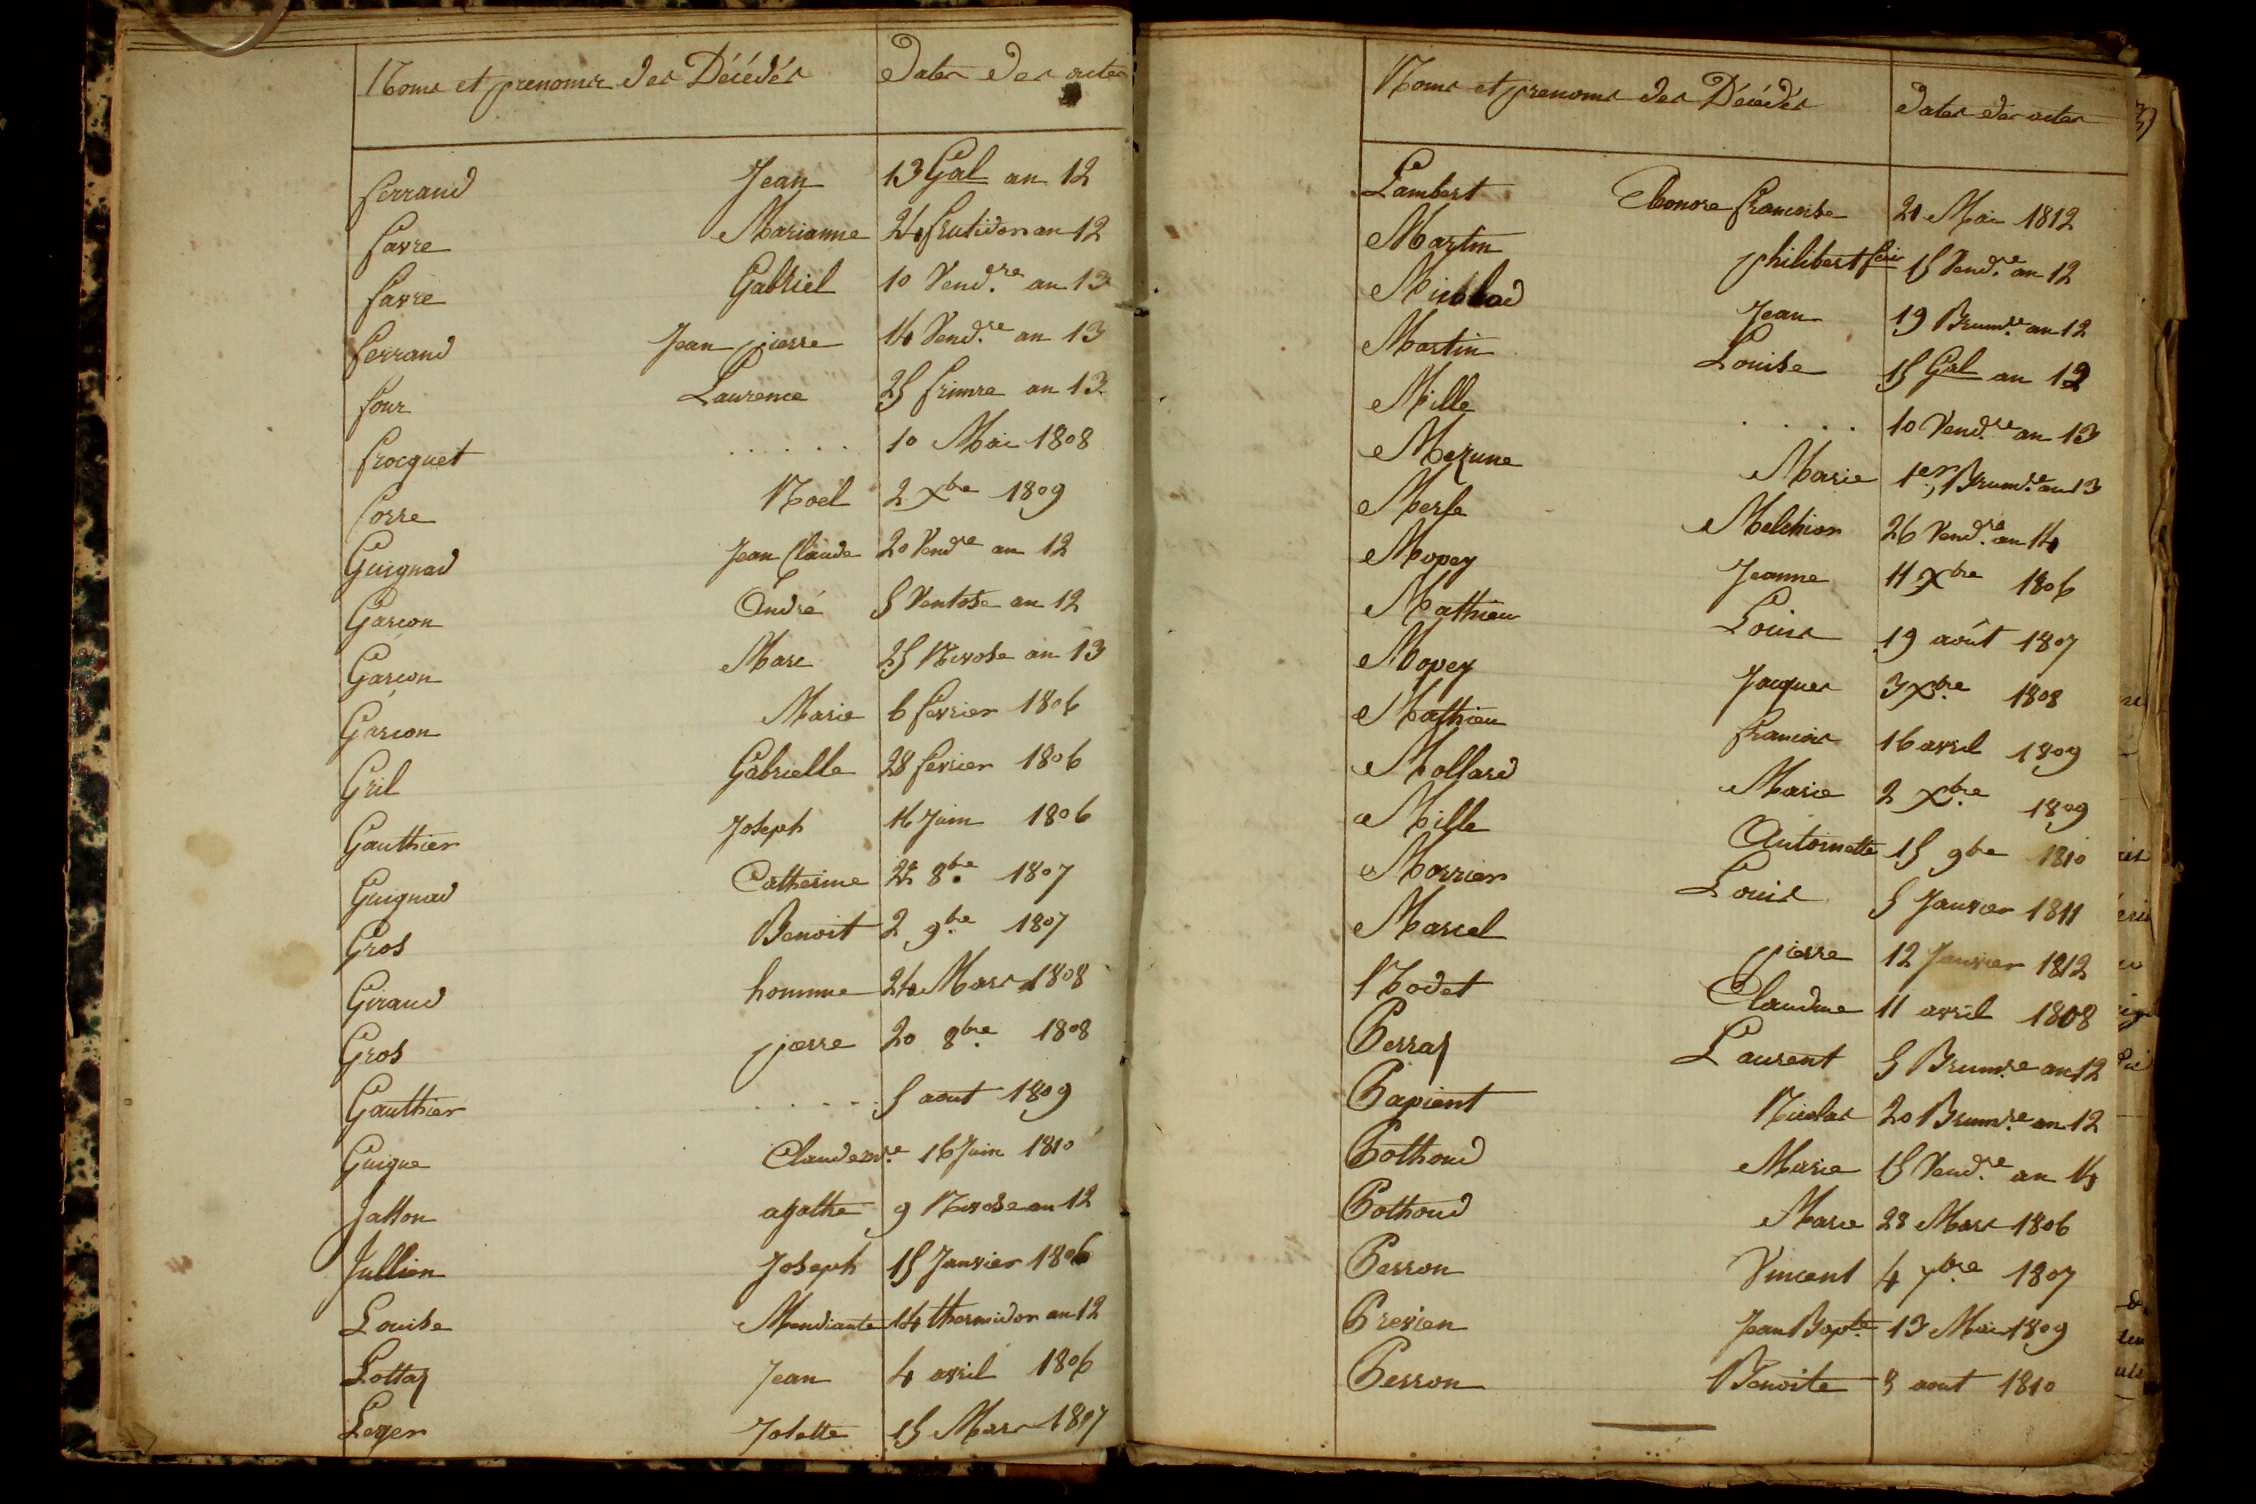 Noms et prenoms des Décédés Dates des actes
ferrand Jean 13 Gal an 12
favre Marianne 24 frutidor an 12
favre Gabriel 10 Vend.re an 13
ferrand Jean pierre 14 Vend.re an 13
four Laurence 25 frimre an 13
frocquet ...... 10 Mai 1808
forre Noel 2 Xbre 1809
Guignad Jean Claude 20 Vendre an 12
Garcon André 5 Ventose an 12
Garçon Marc 25 Nivose an 13
Garçon Marie 6 fevrier 1806
Gril Gabrielle 28 fevrier 1806
Gauthier Joseph 16 Juin 1806
Guignad Catherine 8.bre 1807
Gros Benoit 2 9.bre 1807
Giraud homme 24 Mars 1808
Gros pierre 20 8.bre 1808
Gauthier ...... 5 aout 1809
Guigue Claude 16 Juin 1810
Jatton agathe 9 Nivose an 12
Jullien Joseph 15 Janvier 1806
Louise Mendiante 14 thermidor an 12
Lottaz Jean 4 avril 1806
Leger Josette 15 Mars 1807
Noms et prenoms des Décédés Dates des actes
Lambert Eleonore francoise 21 Mai 1812
Martin philibert 15 Vend.re an 12
Michlad Jean 19 Brum.re an 12
Martin Louise 15 Gal an 12
Mille ..... 10 Vend.re an 13
Mezune Marie 1er Brum.re an 13
Merle Melchior 26 Vend.re an 14
Mopey Jeanne 11 Xbre 1806
Mathieu Louis 19 août 1807
Mopey Jacques 3 Xbre 1808
Mathieu francois 16 avril 1809
Mollard Marie 2 Xbre 1809
Mille Antoinette 15 9bre 1810
Morrier Louis 5 Janvier 1811
Marcel pierre 12 Janvier 1812
Nodet Claudine 11 avril 1808
Perraz Laurent 5 Brum.re an 12
Papient Nicolas 20 Brum.re an 12
Pothoud Marie 15 Vend.re an 14
Pothoud Marie 28 Mars 1806
Perron Vincent 4 7bre 1807
Previen Jean Bapte 13 Mai 1809
Perron Benoite 3 aout 1810